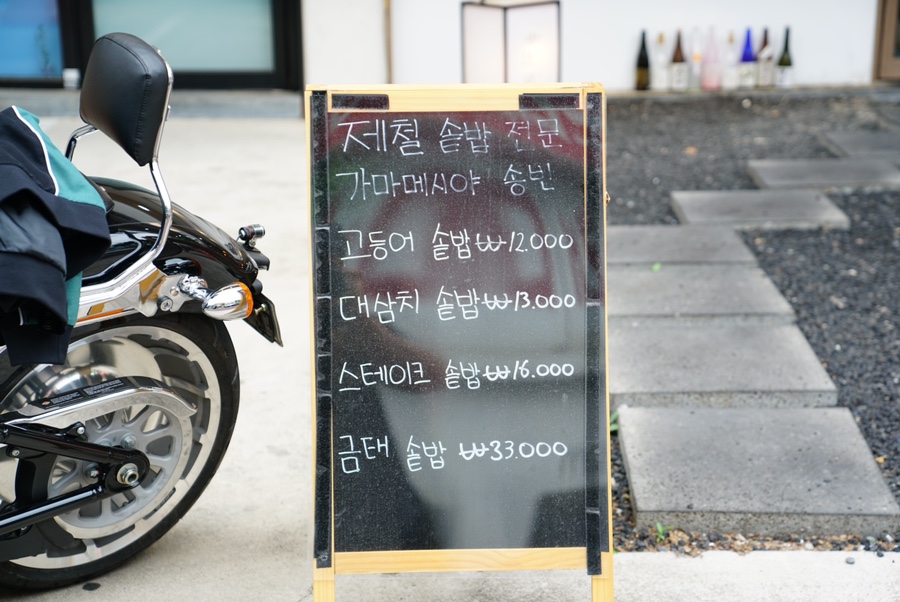 제철 솥밥 전문
가마메시야 송빈
고등어 솥밥 ₩12.000
대삼치 솥밥 ₩13.000
스테이크 솥밥 ₩16.000
금태 솥밥 ₩33.000